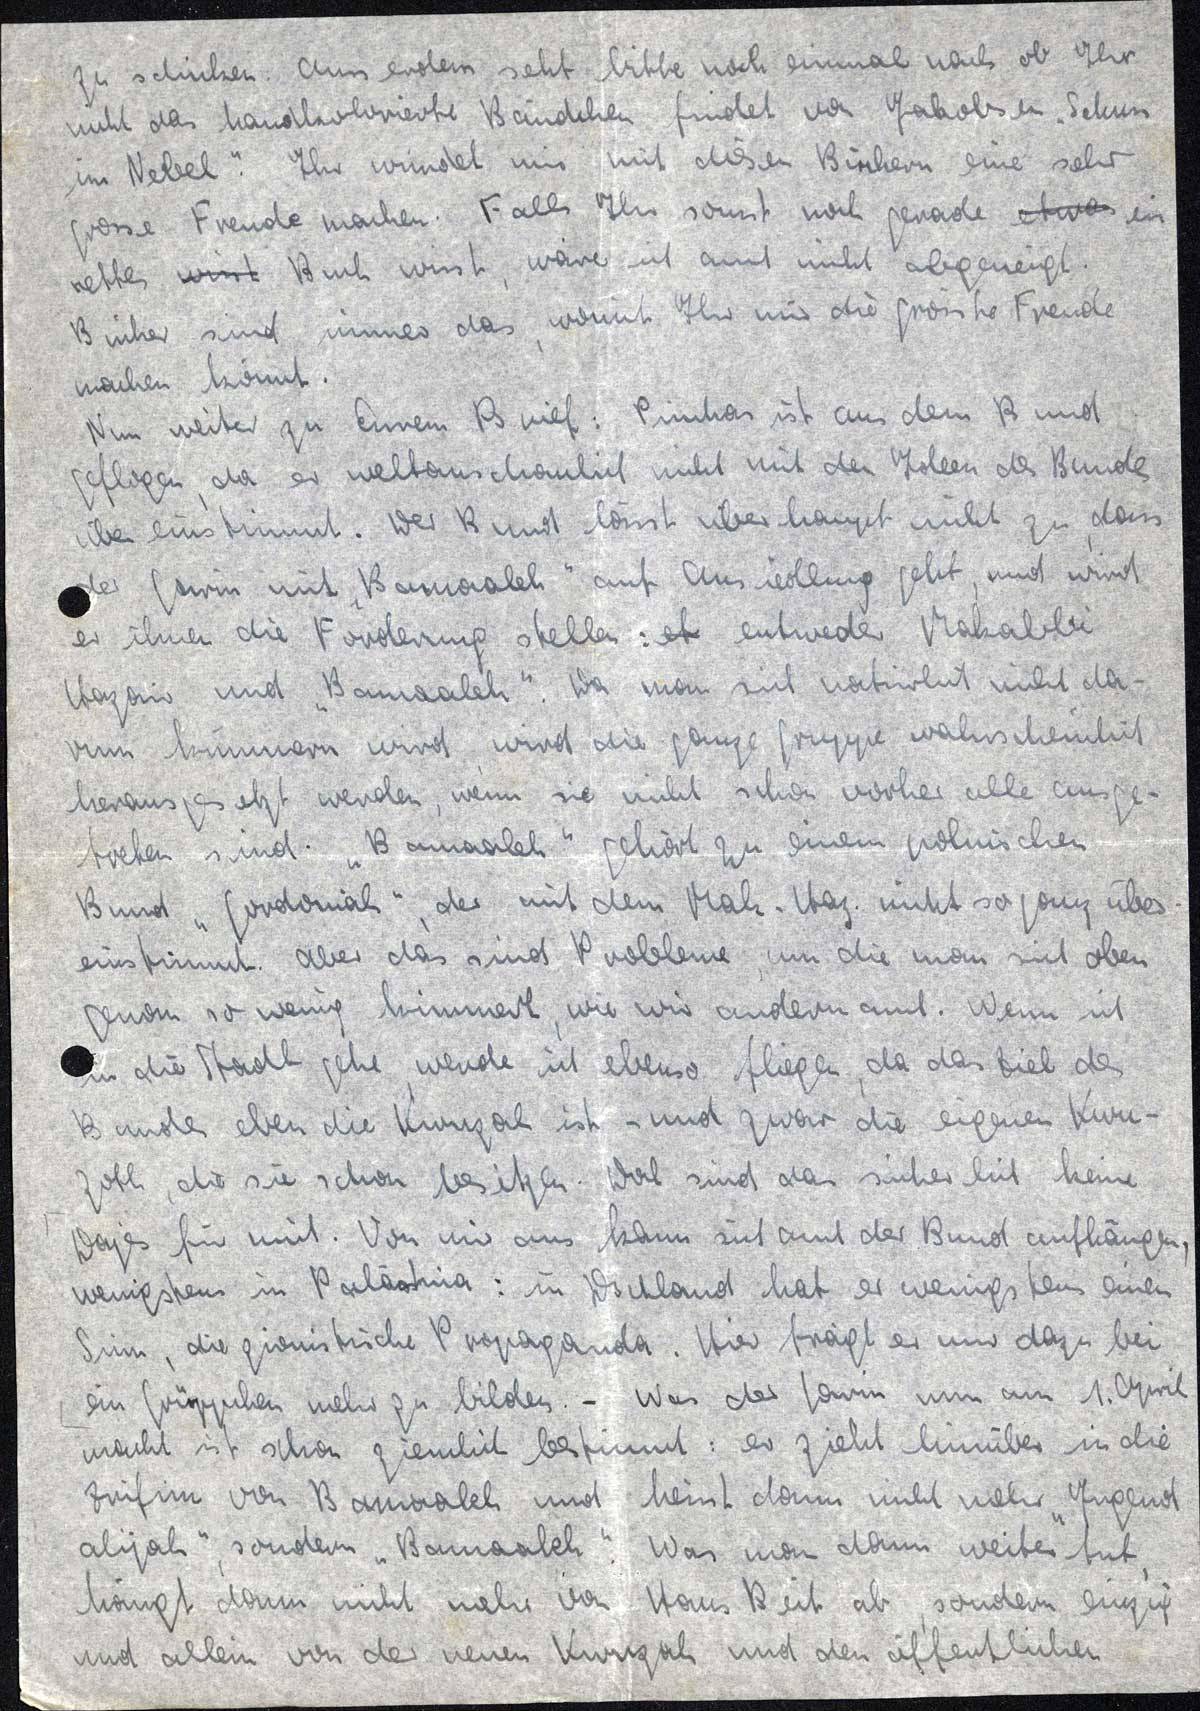 zu schicken. Ausserdem seht bitte noch einmal nach ob Ihr
nicht das handkolorierte Bändchen findet von Jakobsen „Schuss
im Nebel“. Ihr würdet mir mit diesen Büchern eine sehr
grosse Freude machen. Falls Ihr sonst noch gerade etwas ein
nettes wisst Buch wisst, wäre ich auch nicht abgeneigt.
Bücher sind immer das, womit Ihr mir die grösste Freude
machen könnt.
Nun weiter zu Eurem Brief: Pinchas ist aus dem Bund
geflogen, da er weltanschaulich nicht mit den Ideen des Bundes
übereinstimmt. Der Bund lässt überhaupt nicht zu, dass
der Garin mit „Bamaaleh“ auf Ansiedlung geht, und wird
er ihnen die Forderung stellen: entweder Makabbi
Hazair und „Bamaaleh“. Da man sich natürlich nicht da-
rum kümmern wird, wird die ganze Gruppe wahrscheinlich
herausgesetzt werden, wenn sie nicht schon vorher alle ausge-
treten sind. „Bamaaleh“ gehört zu einem polnischen
Bund „Gordoniah“, der mit dem Mak. Haz. nicht so ganz über-
einstimmt. Aber das sind Probleme, um die man sich oben
genau so wenig kümmert, wie wir andern auch. Wenn ich
in die Stadt gehe, werde ich ebenso fliegen, da das Ziel des
Bundes eben die Kwuzah ist – und zwar die eigenen Kwu-
zoth, die sie schon besitzen. Doch sind das sicherlich keine
Dajes für mich. Von mir aus kann sich auch der Bund aufhängen,
wenigstens in Palästina: in Dschland hat er wenigstens einen
Sinn, die zionistische Propaganda. Hier trägt er nur dazu bei
ein Grüppchen mehr zu bilden. – Was der Garin nun am 1. April
macht ist schon ziemlich bestimmt: er zieht hinüber in die
Zrifim von Bamaaleh und heisst dann nicht mehr „Jugend
alijah“, sondern „Bamaaleh“. Was man dann weiter tut,
hängt dann nicht mehr von Hans Beit ab, sondern einzig
und allein von der neuen Kwuzah und den öffentlichen